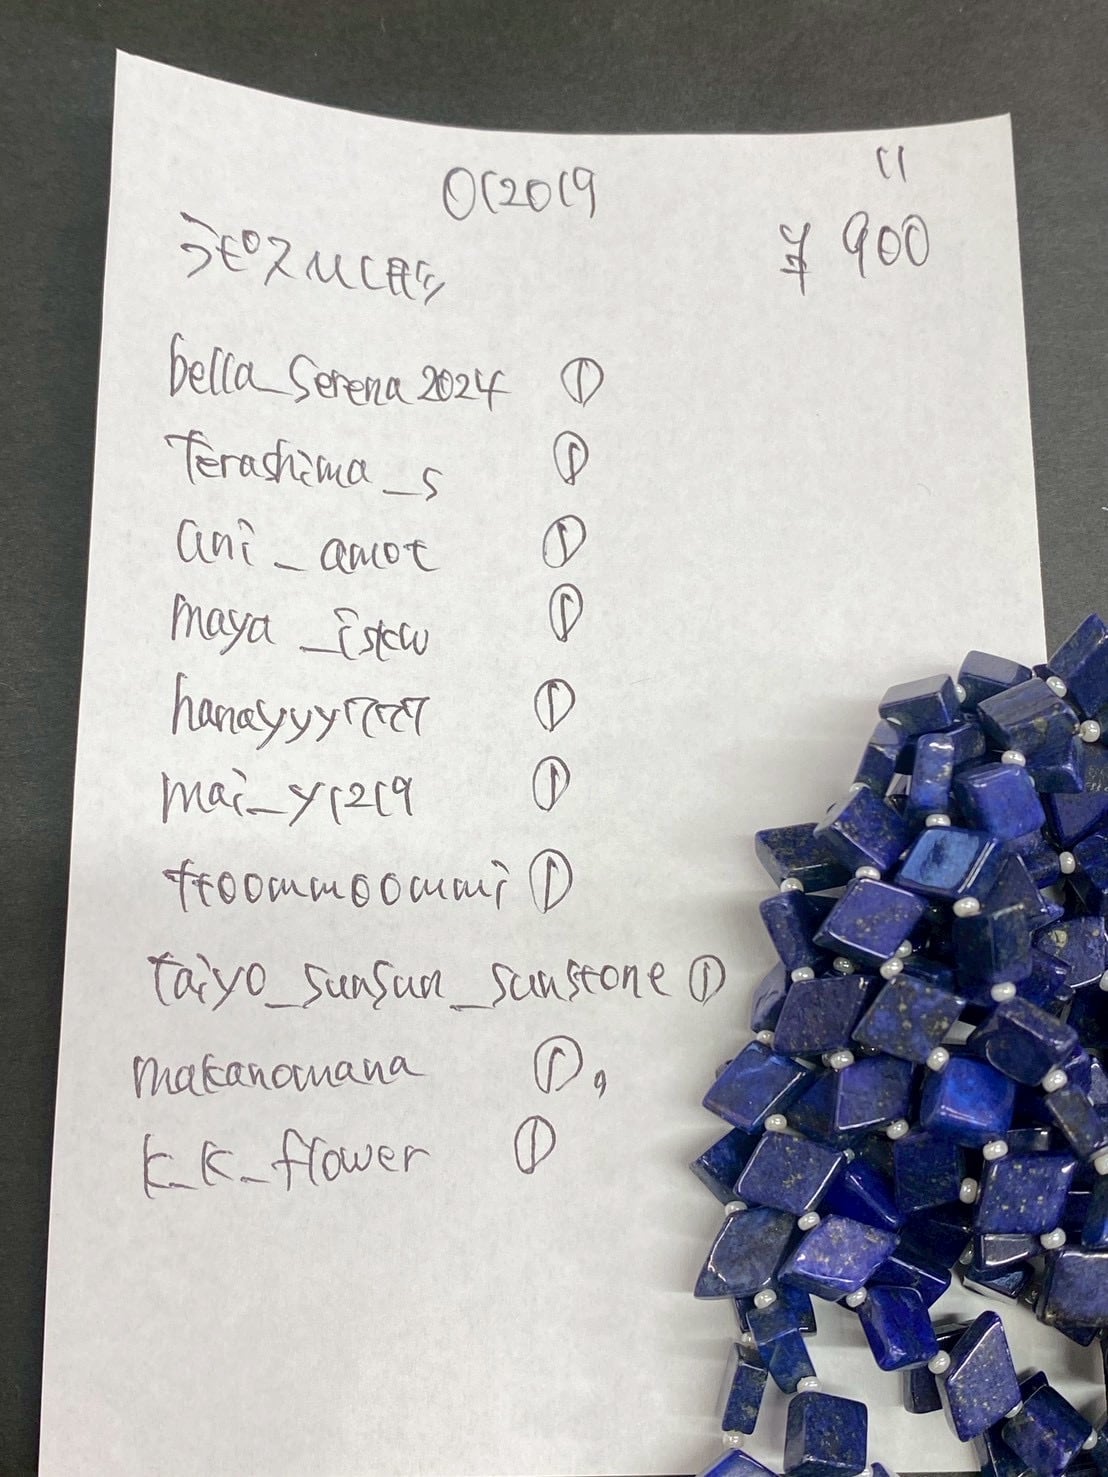 012019
11
ラピス
¥900
bella_serena2024 ①
Terashima_s ①
ani_amot ①
maya_iskw ①
hanayyy7777 ①
mai_y1219 ①
ttoommoommi ①
taiyo_sunsun_sunstone ①
makanomana ①,
k_k_flower ①